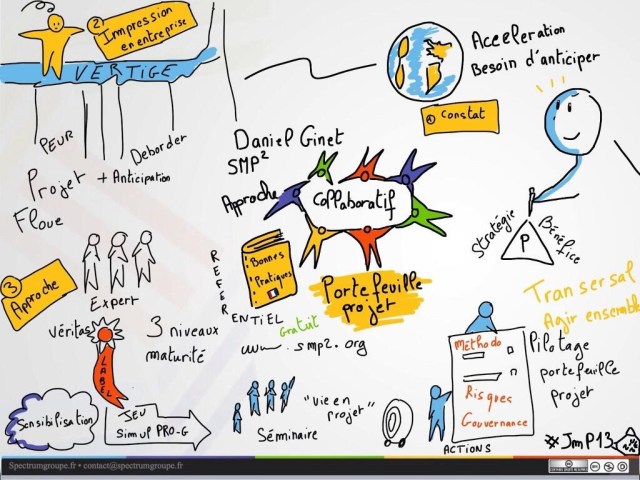 2
Impression
en entreprise
VERTIGE
PEUR
Deborder
Projet + Anticipation
Floue
Acceleration
Besoin d'anticiper
1 Constat
Daniel Ginet
SMP²
Approche
Collaboratif
Stratégie
Bénéfice
P
Bonnes
Pratiques
REFERENTIEL
Gratuit
www.smp2.org
Portefeuille
projet
Transersal
Agir ensemble
3
Approche
Expert
Véritas
LABEL
3 niveaux
maturité
Sensibilisation
JEU
Simul PRO-G
Séminaire
"vie en
projet"
Méthode
Risques
Gouvernance
ACTIONS
Pilotage
portefeuille
projet
#JMP13
Spectrumgroupe.fr • contact@spectrumgroupe.fr